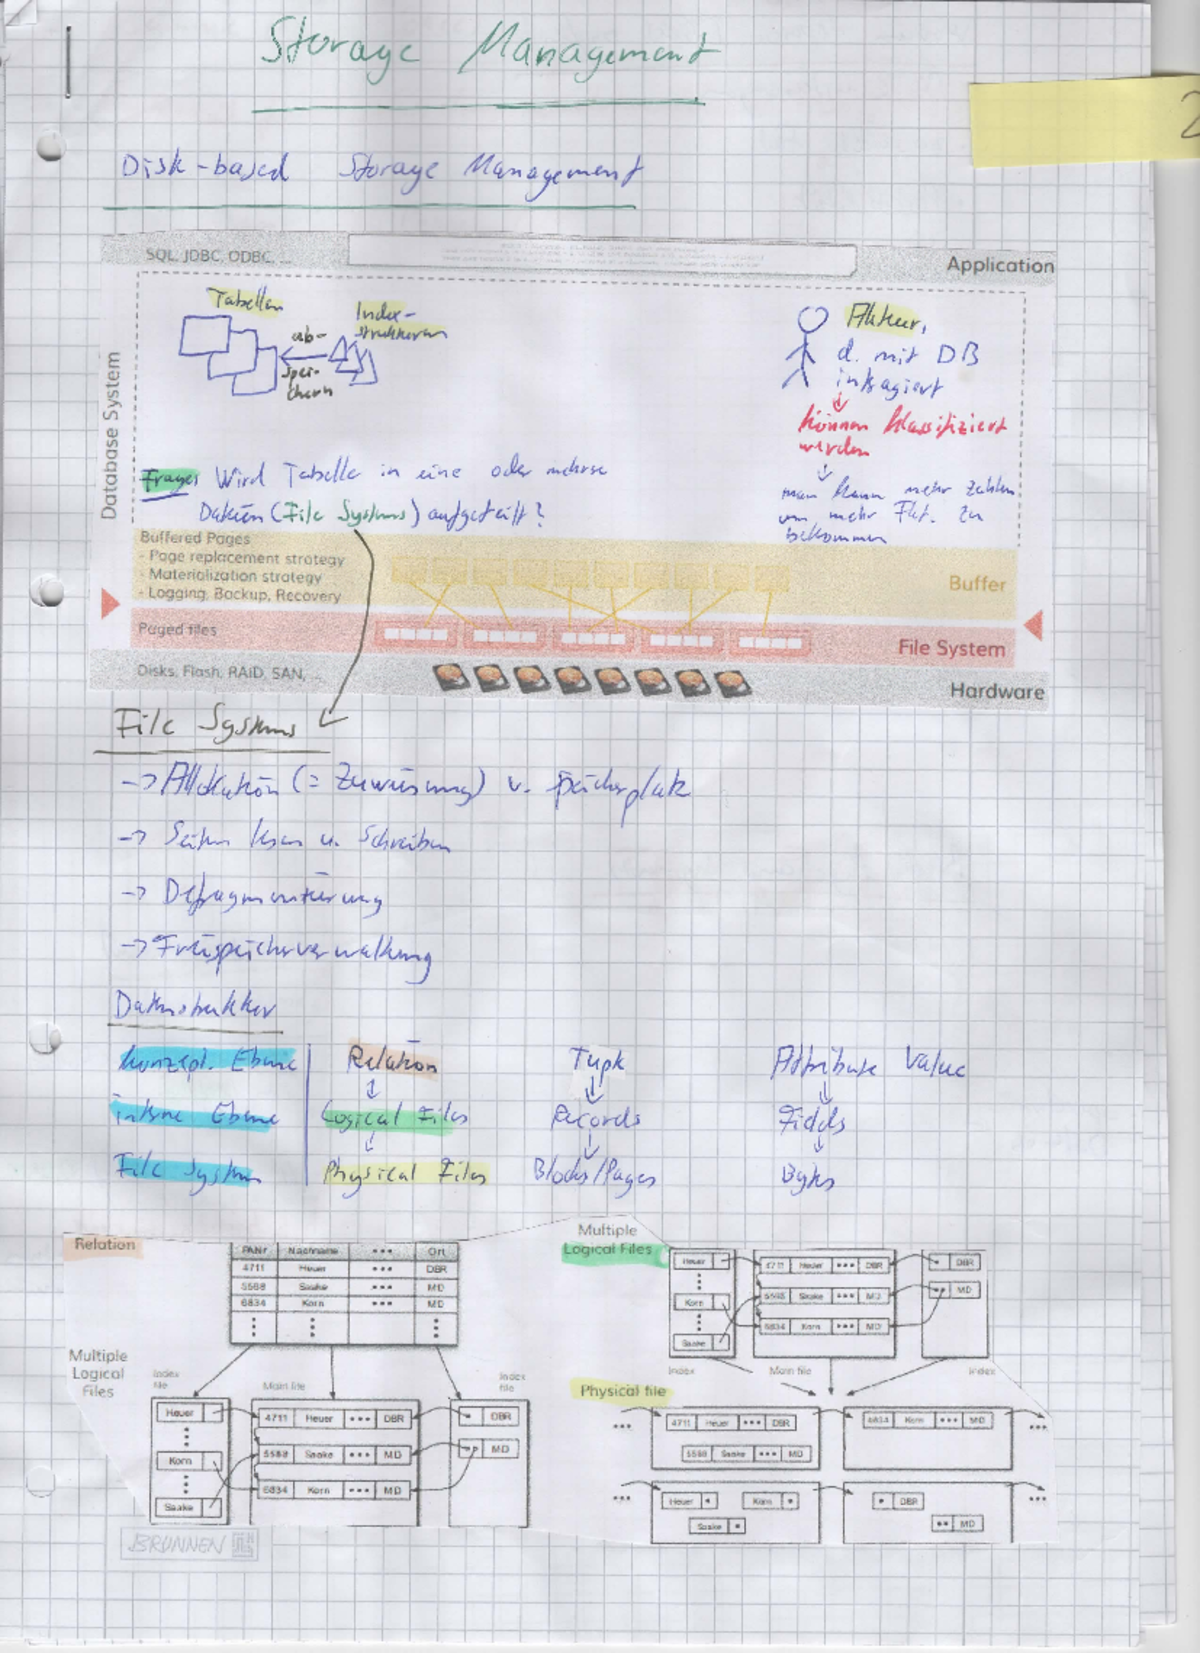 Storage Management
2
Disk-based Storage Management
SQL, JDBC, ODBC, ...
Application
Database System
Tabellen
Index-
strukturen
ab-
spei-
chern
Akteur,
d. mit DB
intragiert
können klassifiziert
werden
man kann mehr zahlen
um mehr Fkt. zu
bekommen
Frage: Wird Tabelle in eine oder mehrere
Dateien (File Systems) aufgeteilt?
Buffered Pages
- Page replacement strategy
- Materialization strategy
- Logging, Backup, Recovery
Buffer
Paged files
File System
Disks, Flash, RAID, SAN, ...
Hardware
File Systems
-> Allokation (= Zuweisung) v. Speicherplatz
-> Seiten lesen u. Schreiben
-> Defragmentierung
-> Freispeicherverwaltung
Datenstruktur
konzept. Ebene Relation Tupel Attribute Value
interne Ebene Logical Files Records Fields
File System Physical Files Blocks/Pages Bytes
Relation
PANr Nachname ... Ort
4711 Heuer ... DBR
5588 Saake ... MD
6834 Korn ... MD
Multiple
Logical
Files
Index
file
Main file
Index
file
Heuer
Korn
Saake
4711 Heuer ... DBR
5588 Saake ... MD
6834 Korn ... MD
DBR
MD
Multiple
Logical Files
Heuer
Korn
Saake
4711 Heuer ... DBR
5588 Saake ... MD
6834 Korn ... MD
DBR
MD
Index Main file Index
Physical file
4711 Heuer ... DBR
5588 Saake ... MD
6834 Korn ... MD
Heuer
Korn
Saake
DBR
MD
BRUNNEN